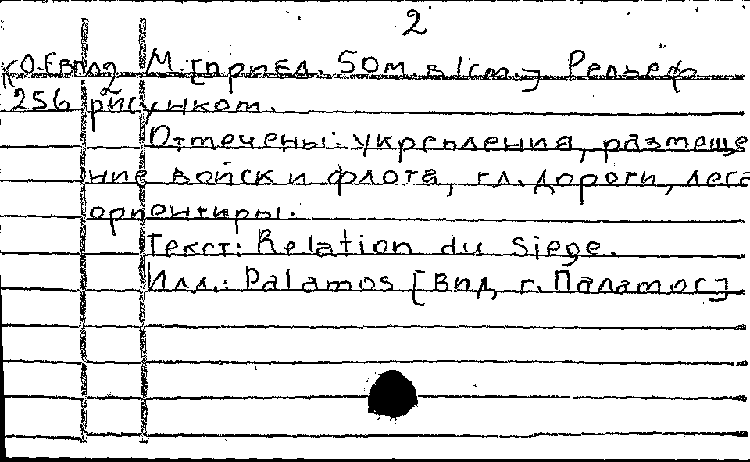 2
К О.Евпд М. [прибл. 50м. в 1см.] Рельеф
256 рисунком.
Отмечены: укрепления, размеще
ние войск и флота, гл. дороги, леса
ориентиры.
Текст: Relation du Siege.
Илл.: Palamos [Вид г. Паламос]